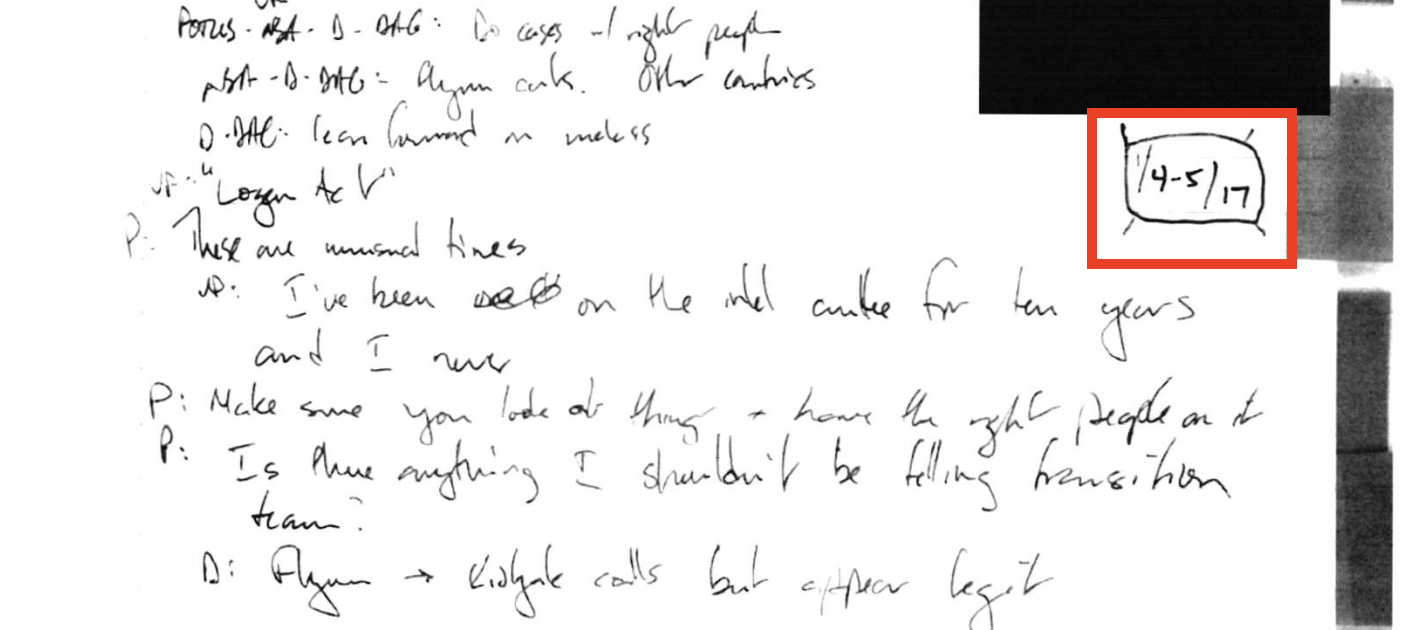 VP
POTUS - NSA - D - DAG: Do cases w/ right people
NSA - D - DAG = Flynn cuts. Other countries
D - DAG: lean forward on unclass
1/4-5/17
VP: "Logan Act"
P: These are unusual times
VP: I've been on the intel cmtee for ten years
and I never
P: Make sure you look at things + have the right people on it
P: Is there anything I shouldn't be telling transition
team?
D: Flynn → Kislyak calls but appear legit